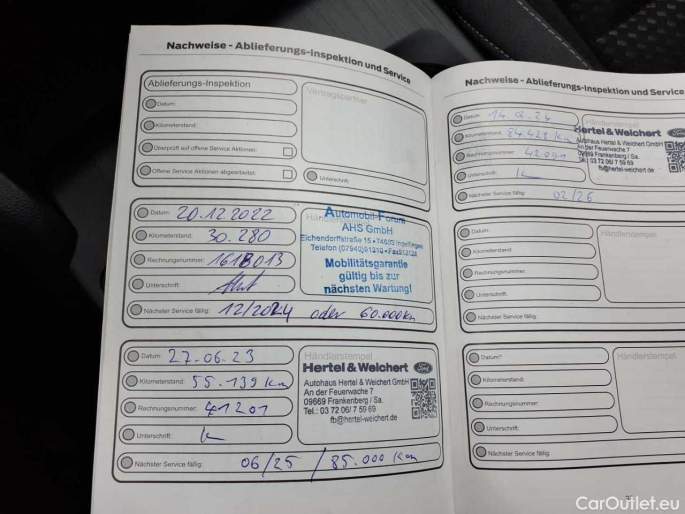 Nachweise - Ablieferungs-Inspektion und Service
Ablieferungs-Inspektion
Datum:
Kilometerstand:
Überprüft auf offene Service Aktionen:
Offene Service Aktionen abgearbeitet:
Vertragspartner
Unterschrift
Datum: 20.12.2022
Kilometerstand: 30.280
Rechnungsnummer: 1618013
Unterschrift:
Nächster Service fällig: 12/2024 oder 60.000km
Automobil-Forum
AHS GmbH
Eichendorffstraße 15 • 74653 Ingelfingen
Telefon (07940)
Mobilitätsgarantie
gültig bis zur
nächsten Wartung!
Datum: 27.06.23
Kilometerstand: 55.139 Km
Rechnungsnummer: 41201
Unterschrift:
Nächster Service fällig: 06/25 / 85.000 Km
Händlerstempel
Hertel & Weichert Ford
Autohaus Hertel & Weichert GmbH
An der Feuerwache 7
09669 Frankenberg / Sa.
Tel.: 03 72 06/ 7 59 69
fb@hertel-weichert.de
Nachweise - Ablieferungs-Inspektion und Service
Datum: 14.08.24
Kilometerstand: 84.428 Km
Rechnungsnummer:
Unterschrift:
Nächster Service fällig: 02/26
Händlerstempel
Hertel & Weichert Ford
Autohaus Hertel & Weichert GmbH
An der Feuerwache 7
09669 Frankenberg / Sa.
Tel.: 03 72 06/ 7 59 69
fb@hertel-weichert.de
Datum:
Kilometerstand:
Rechnungsnummer:
Unterschrift:
Nächster Service fällig:
Händlerstempel
Datum:
Kilometerstand:
Rechnungsnummer:
Unterschrift:
Nächster Service fällig:
Händlerstempel
CarOutlet.eu